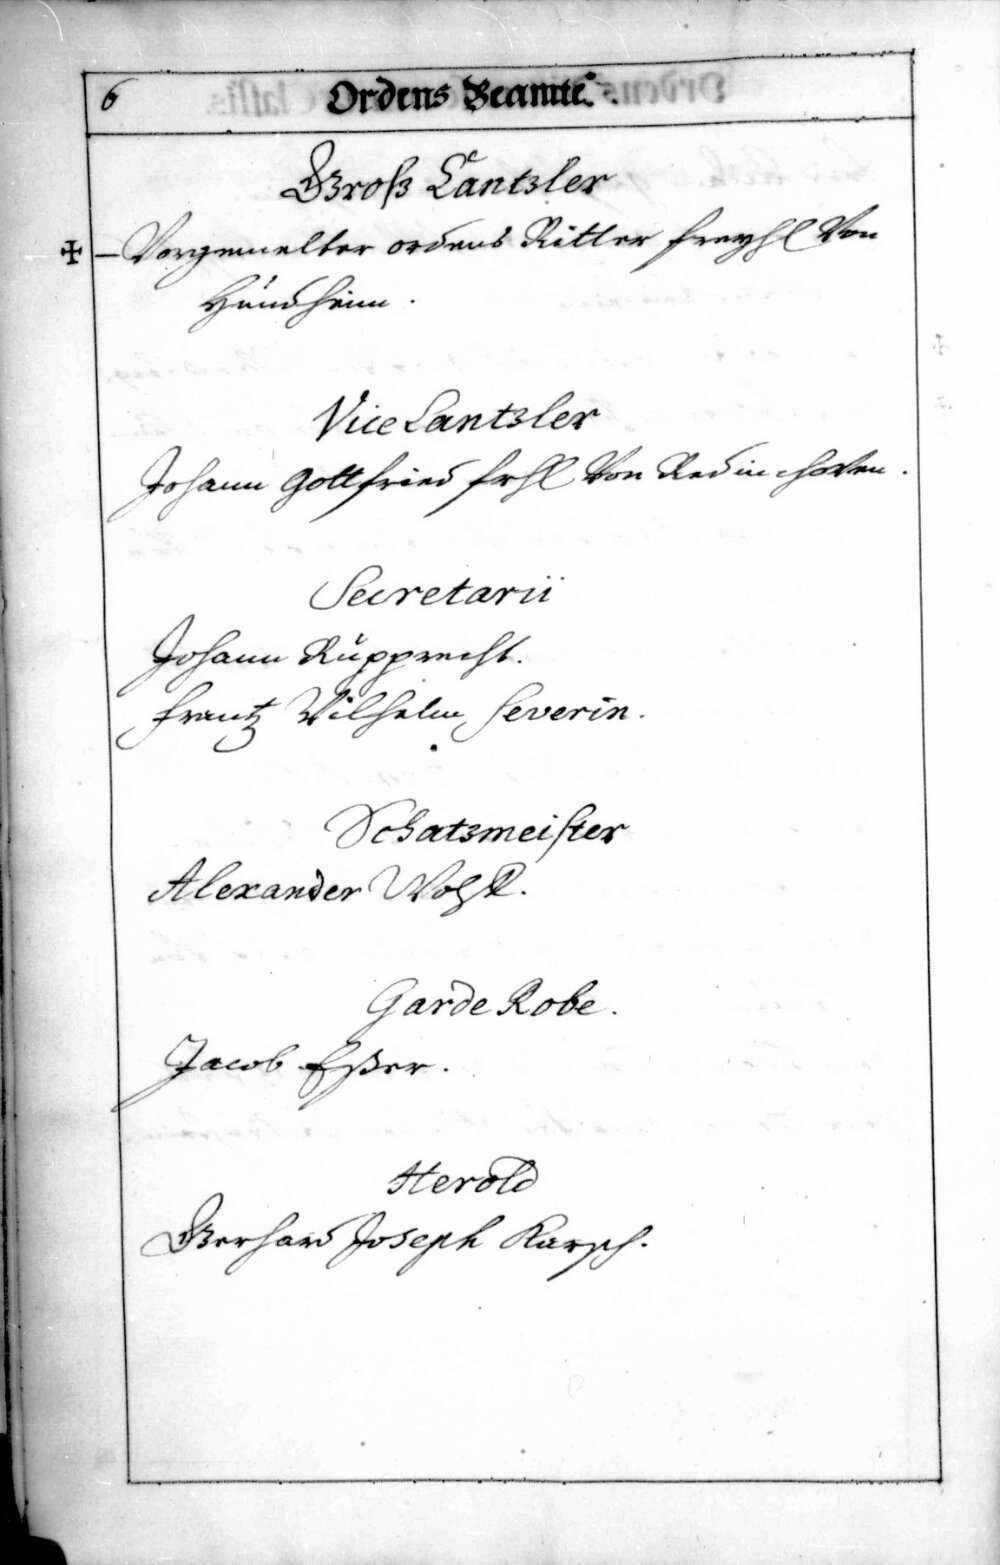 6 Ordens Beamte.
Groß Cantzler
✠ – Vorgemelter ordens Ritter freyhl Von
Hündheim.
Vice Cantzler
Johann Gottfried frhl Von Redinchoven.
Secretarii
Johann Rupprecht.
frantz Wilhelm Severin.
Schatzmeister
Alexander
Garde Robe.
Jacob Eßer.
Herold
Gerhard Joseph Karsch.